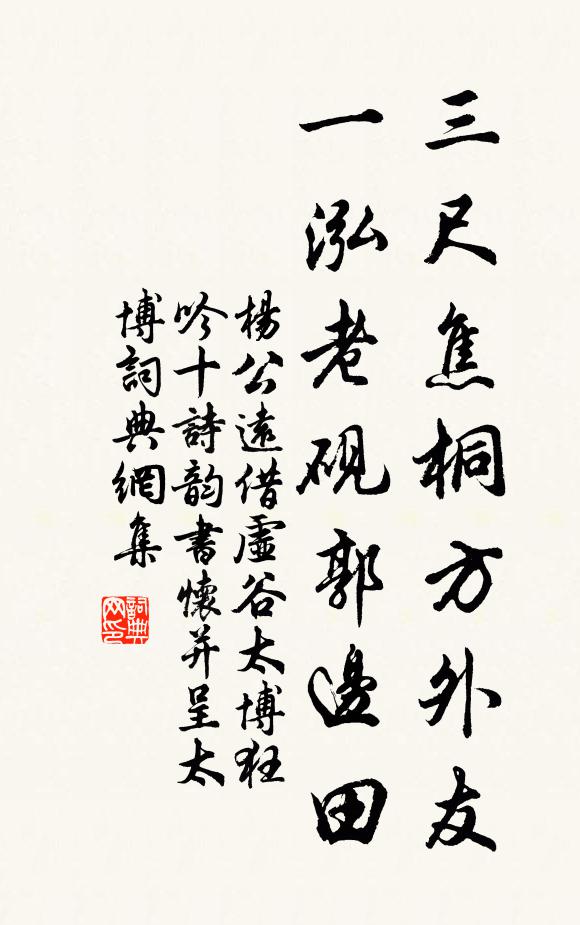 三尺焦桐方外友
一泓老硯郭邊田
楊公遠借虛谷太博狂
吟十詩韵書懷并呈太
博詞典網集
詞典网印